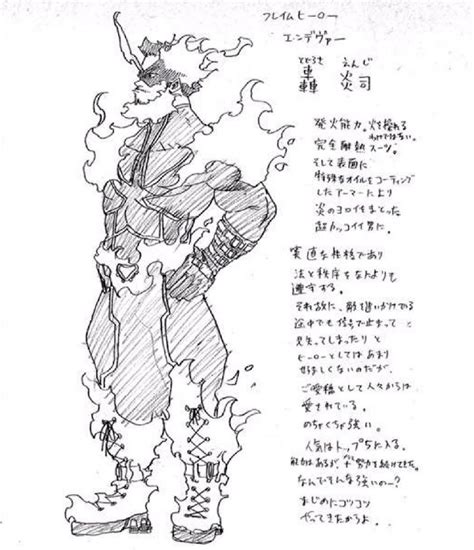 フレイムヒーロー
エンデヴァー
とどろき えんじ
轟 炎司
発火能力。火を操れる
わけではない。
完全耐熱スーツ。
そして表面に
特殊なオイルをコーティング
したアーマーにより
炎のヨロイをまとった
超カッコイイ男に。
実直な性格であり
法と秩序をなんよりも
遵守する。
それ故に、敵を追いかけてる
途中でも信号で止まって
見失ってしまったりと
ヒーローとしてはあまり
好ましくないのだが、
ご愛嬌として人々からは
愛されている。
めちゃくちゃ強い。
人気はトップ5に入る。
能力はあるが、努力を続けてきた。
なんでそんな強いのー?
まじめにコツコツ
やってきたからよ。